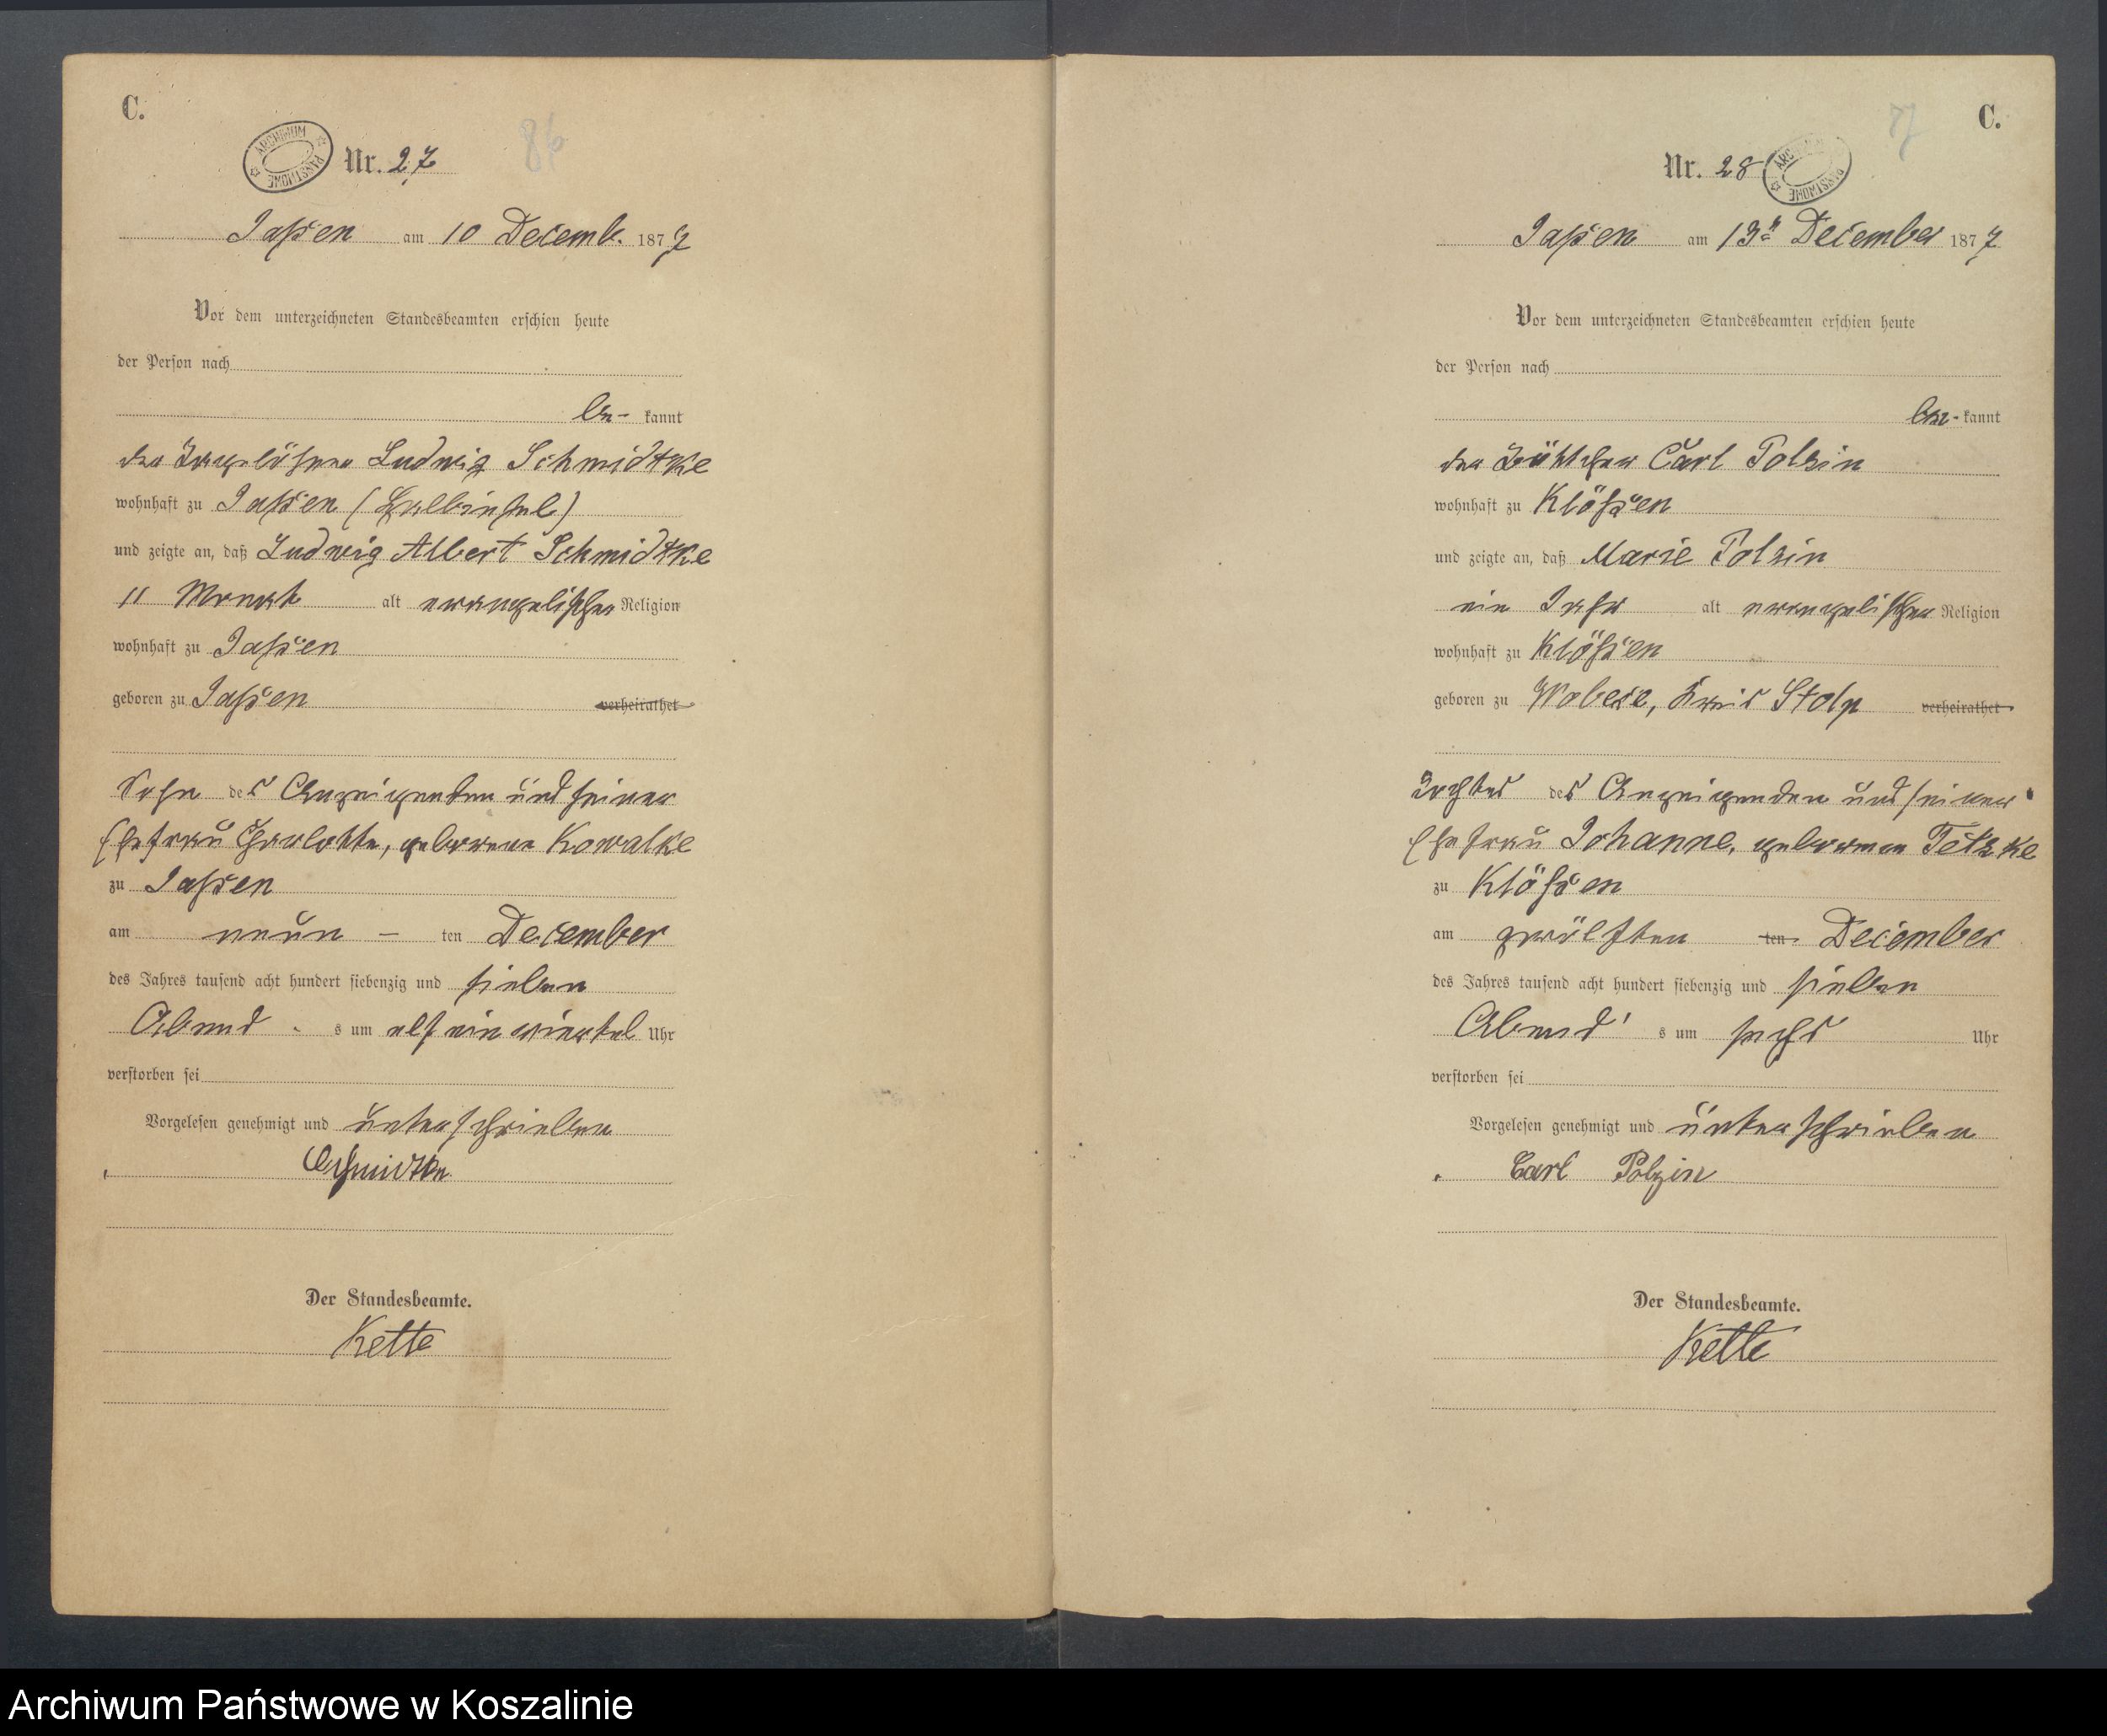 C.
ARCHIWUM PAŃSTWOWE
Nr. 27
86
Jassen am 10 Decemb. 1877
Vor dem unterzeichneten Standesbeamten erschien heute
der Person nach
be- kannt
der Tagelöhner Ludwig Schmidtke
wohnhaft zu Jassen (Halbinsel)
und zeigte an, daß Ludwig Albert Schmidtke
11 Monat alt evangelischer Religion
wohnhaft zu Jassen
geboren zu Jassen verheirathet
Sohn des Anzeigenden und seiner
Ehefrau Charlotte, geborene Kowalke
zu Jassen
am neun - ten December
des Jahres tausend acht hundert siebenzig und sieben
Abend s um elf ein viertel Uhr
verstorben sei
Vorgelesen genehmigt und unterschrieben
Schmidtke
Der Standesbeamte.
Kette
C.
Nr. 28
ARCHIWUM PAŃSTWOWE
Jassen am 13n December 1877
Vor dem unterzeichneten Standesbeamten erschien heute
der Person nach
be- kannt
der Böttcher Carl Polzin
wohnhaft zu Klössen
und zeigte an, daß Marie Polzin
ein Jahr alt evangelischer Religion
wohnhaft zu Klössen
geboren zu Wobese, Kreis Stolp verheirathet
Tochter des Anzeigenden und seiner
Ehefrau Johanne, geborenen Tetzke
zu Klössen
am zwölften ten December
des Jahres tausend acht hundert siebenzig und sieben
Abend' s um sechs Uhr
verstorben sei
Vorgelesen genehmigt und unterschrieben
Carl Polzin
Der Standesbeamte.
Kette
Archiwum Państwowe w Koszalinie